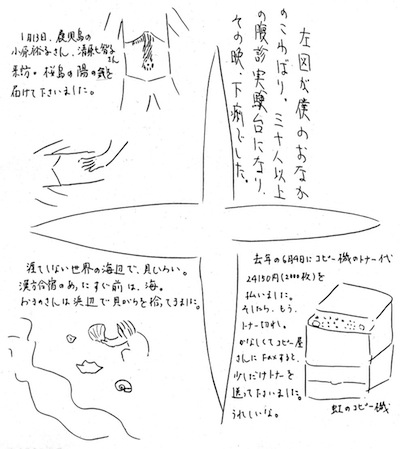 1月13日、鹿児島の
小原裕子さん、清原七智子さん
来坊。桜島の陽の気を
届けて下さいました。
左図が僕のおなか
のこわばり。三十人以上
の腹診実験台になり、
その晩、下痢でした。
涯てしない世界の海辺で、貝ひろい。
漢方合宿のあったすぐ前は、海。
さんは浜辺で貝がらを拾ってきました。
去年の6月9日にコピー機のトナー代
24150円(2000枚)を
払いました。
そしたら、もう、
トナー切れ。
かなしくてコピー屋
さんにFAXすると、
少しだけトナーを
送って下さいました。
うれしいな。
虹のコピー機